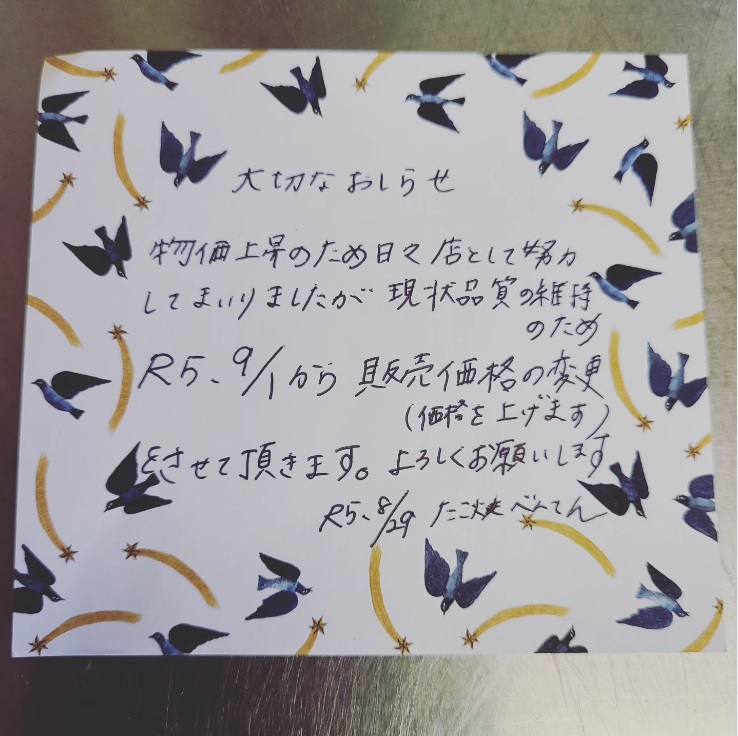 大切なおしらせ
物価上昇のため日々店として努力
してまいりましたが 現状品質の維持
のため
R5、9/1から 販売価格の変更
(価格を上げます)
とさせて頂きます。よろしくお願いします
R5、8/29 たこ焼 べんてん